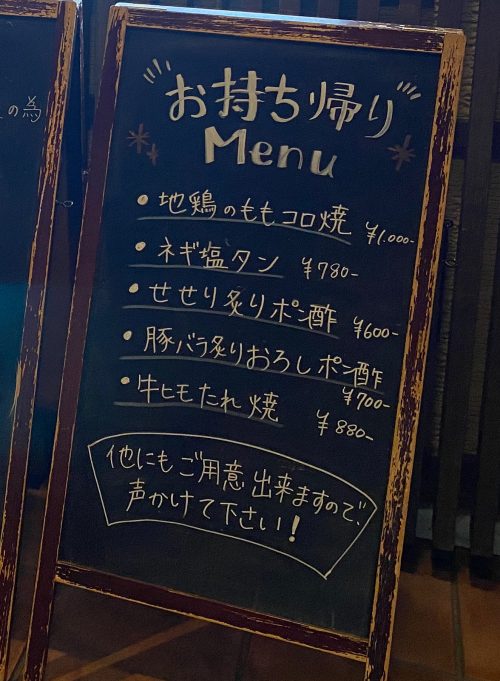 の為
お持ち帰り
Menu
・地鶏のももコロ焼 ¥1.000-
・ネギ塩タン ¥780-
・せせり炙りポン酢 ¥600-
・豚バラ炙りおろしポン酢
¥700-
・牛ヒモたれ焼 ¥880-
他にもご用意出来ますので、
声かけて下さい!